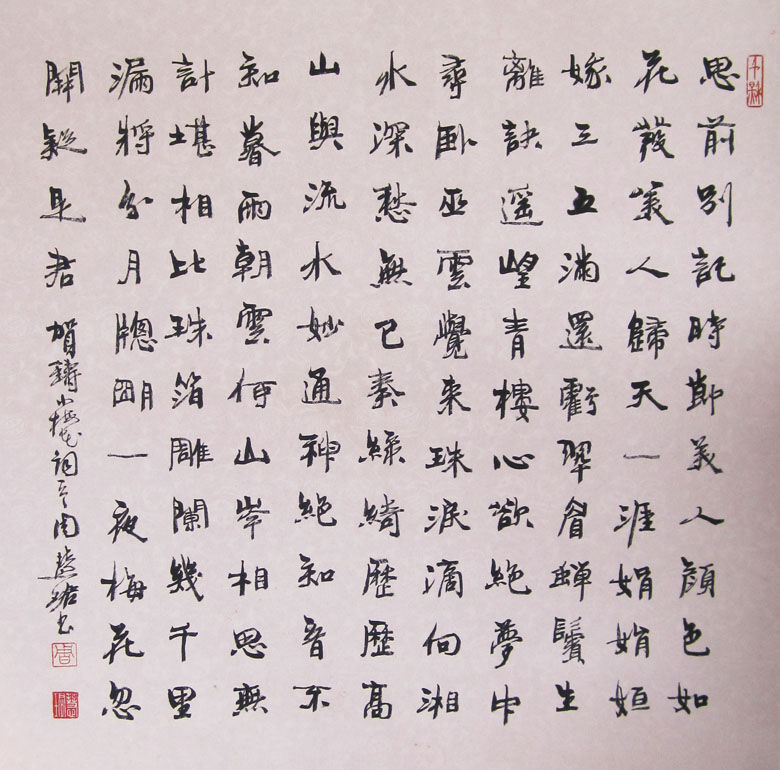 思前別記時節美人顏色如
花發美人歸天一涯娟娟姮
娥三五滿還虧翠眉蟬鬢生
離訣遙望青樓心欲絕夢中
尋臥巫雲覺來珠淚滴向湘
水深愁無已奏綠綺歷歷高
山與流水妙通神絕知音不
知暮雨朝雲何山岑相思無
計堪相比珠箔雕闌幾千里
漏將分月牕明一夜梅花忽
開疑是君 賀鑄小梅花詞 周慧珺书